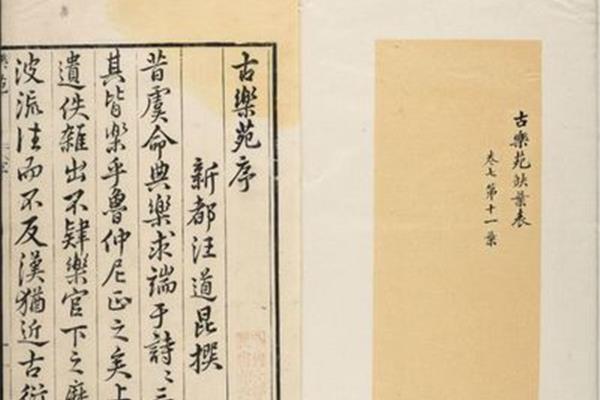 古樂苑缺葉表
卷七第十一葉
古樂苑序
新都汪道昆撰
昔虞命典樂求端于詩〻三
其皆樂乎魯仲尼正之矣上
遺佚雜出不肄樂官下之
波流往而不反漢猶近古